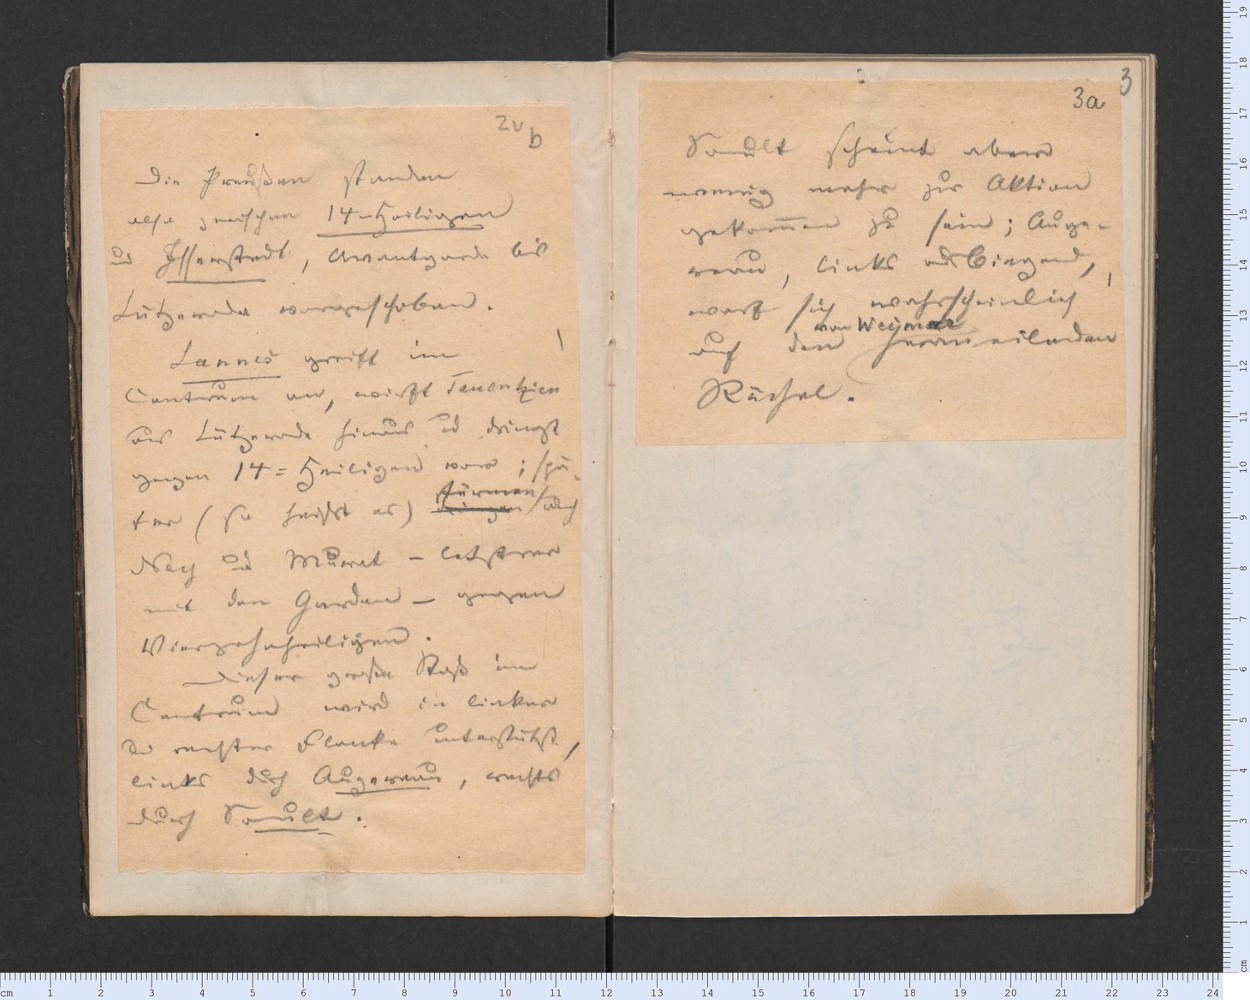 2v
b
Die Preußen standen
also zwischen 14-Heiligen
und Isserstedt, Avantgarde bis
Lützeroda vorgeschoben.
Lannes greift im
Centrum an, wirft Tauentzien
aus Lützeroda hinaus und dringt
gegen 14=Heiligen vor; spä-
ter (so heißt es) stürmen auch
Ney und Murat – letztrer
mit den Garden – gegen
Vierzehnheiligen.
Dieser große Stoß im
Centrum wird in linker
und rechter Flanke unterstützt,
links durch Augereau, rechts
durch Soult.
3
3a
Soult scheint aber
wenig mehr zur Aktion
gekommen zu sein; Auge-
reau, links abbiegend,
warf sich wahrscheinlich
von Weymar
auf den heraneilenden
Rüchel.